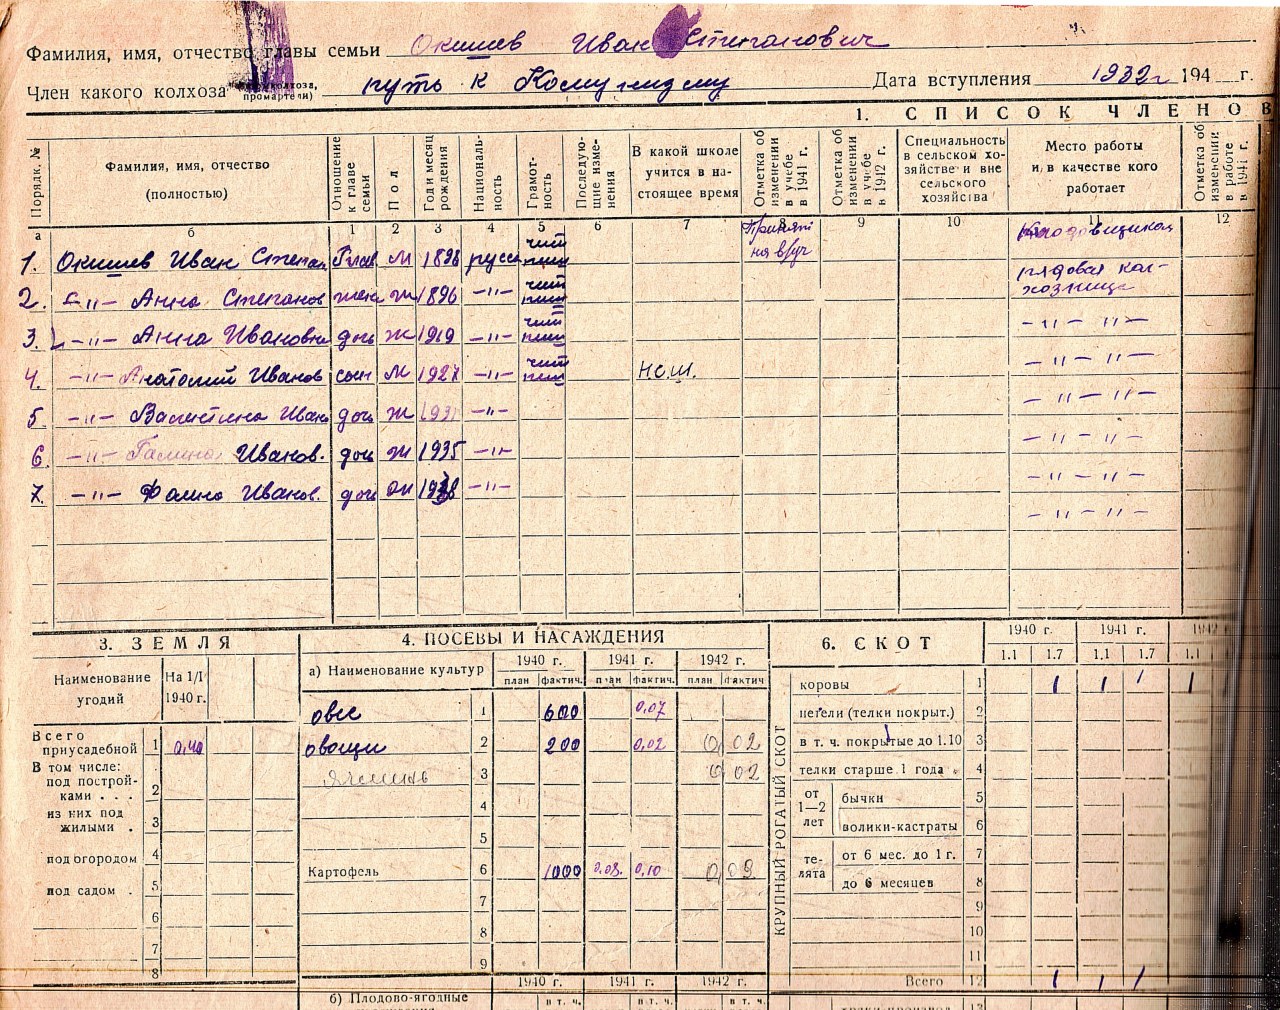 Фамилия, имя, отчество главы семьи Окишев Иван Степанович
Член какого колхоза путь к Комунизму Дата вступления 1932 г 194 г.
промартели)
1. СПИСОК ЧЛЕНОВ
Порядк. № Фамилия, имя, отчество (полностью) Отношение к главе семьи Пол. Год и месяц рождения Националь-ность Грамот-ность Последую-щие изме-нения В какой школе учится в на-стоящее время Отметка об изменении в учебе в 1941 г. Отметка об изменении в учебе в 1942 г. Специальность в сельском хо-зяйстве и вне сельского хозяйства Место работы и в качестве кого работает Отметка об изменении в работе в 1941 г.
а б 1 2 3 4 5 6 7 8 9 10 11 12
1. Окишев Иван Степан Глав м 1898 русск чит пиш на в/уч кладовщиком
2. -"- Анна Степанов жена ж 1896 -"- чит пиш рядовая кол-хозница
3. -"- Анна Ивановна дочь ж 1919 -"- чит пиш -"- "-
4. -"- Анатолий Иванов сын м 1927 -"- чит пиш Н.с.ш. -"- "-
5 -"- Валентина Иван дочь ж 193 -"- -"- "-
6. -"- Галина Иванов. дочь ж 1935 -"- -"- "-
7. -"- Фаина Иванов. дочь ж 1938 -"- -"- "-
-"- "-
3. ЗЕМЛЯ
Наименование угодий На 1/I 1940 г.
Всего приусадебной 1 0,40
В том числе:
под построй-ками . . . 2
из них под жилыми . 3
под огородом 4
под садом . 5
6
7
8
4. ПОСЕВЫ И НАСАЖДЕНИЯ
а) Наименование культур 1940 г. 1941 г. 1942 г.
план фактич. план фактич. план фактич
овес 1 600 0,07
овощи 2 200 0,02 0,02
Ячмень 3 0,02
4
5
Картофель 6 1000 0,08. 0,10 0,03
7
8
9
1940 г. 1941 г. 1942 г.
б) Плодово-ягодные в т. ч. в т. ч. в т. ч.
6. СКОТ 1940 г. 1941 г. 1942
1.1 1.7 1.1 1.7 1.1
КРУПНЫЙ РОГАТЫЙ СКОТ
коровы 1 1 1 1 1
нетели (телки покрыт.) 2
в т. ч. покрытые до 1.10 3
телки старше 1 года 4
от 1—2 лет бычки 5
волики-кастраты 6
те-лята от 6 мес. до 1 г. 7
до 6 месяцев 8
9
10
11
Всего 12 1 1 1
13